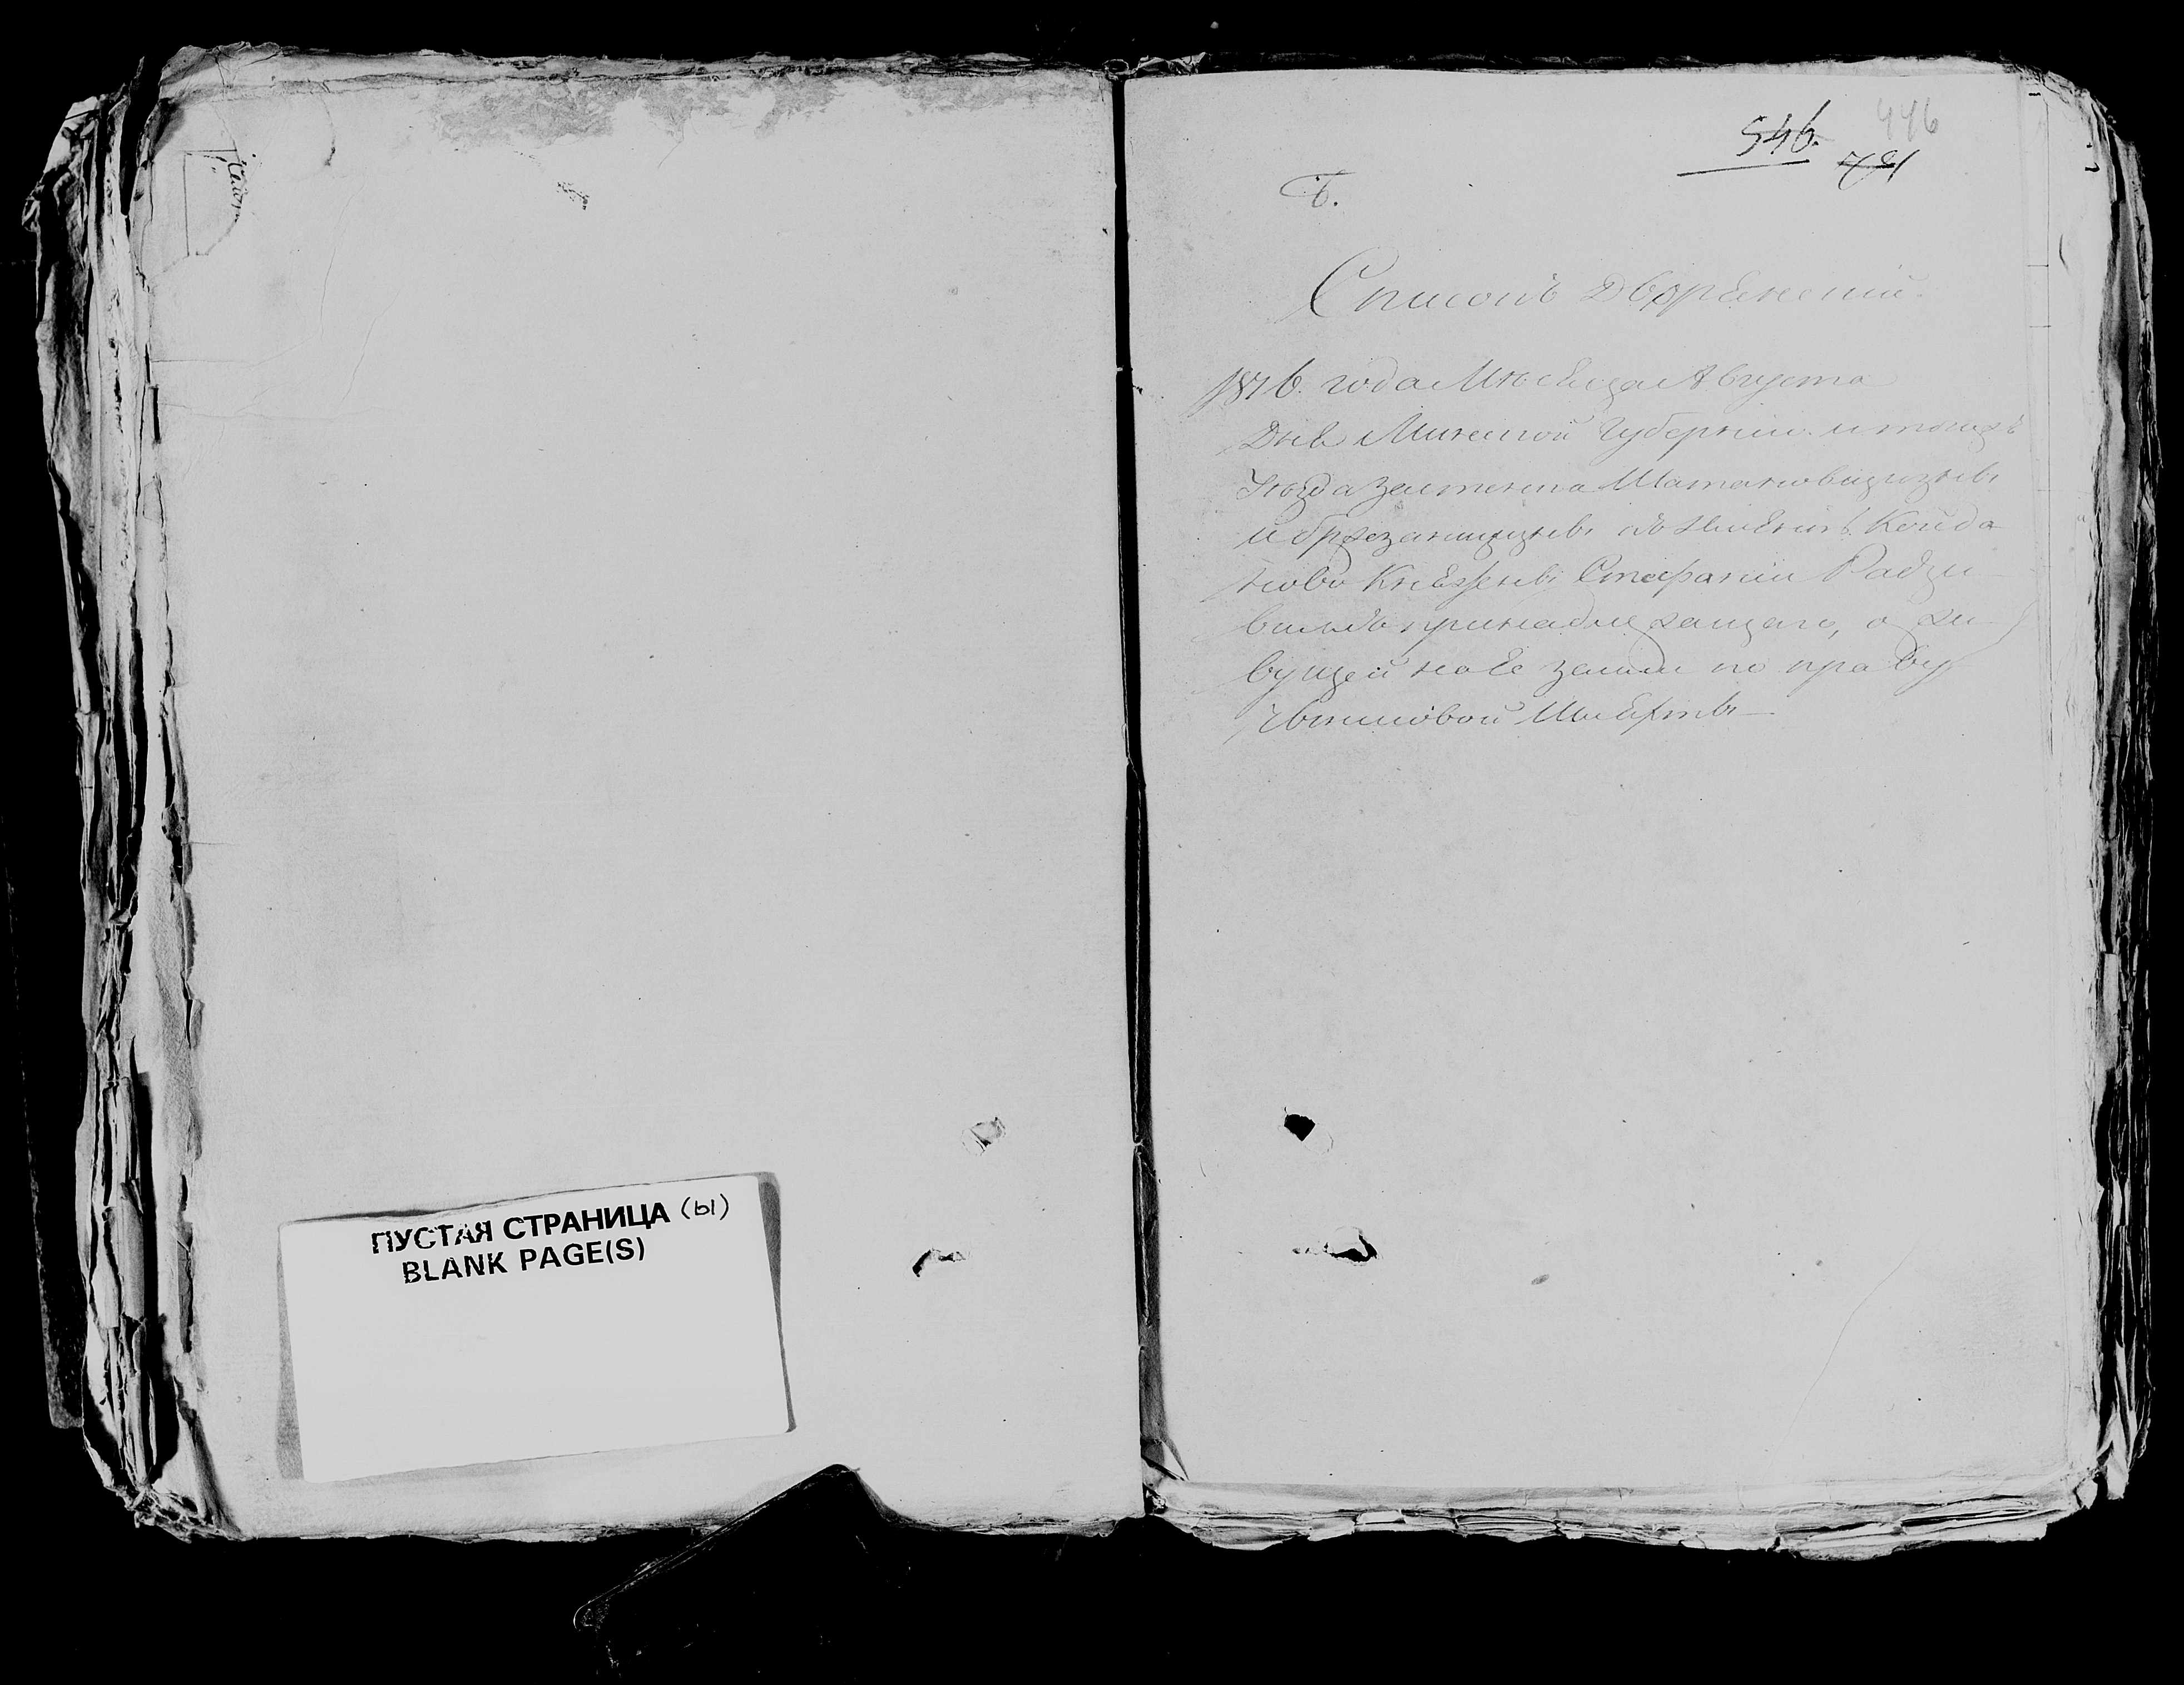 ПУСТАЯ СТРАНИЦА (ы)
BLANK PAGE(S)
546. 446
Б.
Списокъ Дворянскій
1816. года Месяца Августа
Дня Минской Губернии и тогожъ
уезда застенка
и въ имении Койда
ново Княжны Стефании Радзи
вилъ принадлежащаго, о жи
вущей на ее земли по праву
чиншовой Шляхты